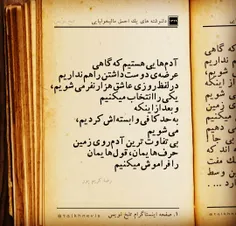 دلنوشته های یک احمق مالیخولیایی
آدم‌هایی هستیم که گاهی
عرضه‌ی دوست داشتن را هم نداریم
در لفظ روزی عاشق هزار نفر می‌شویم،
یکی را انتخاب میکنیم
و بعد از اینکه
به حد کافی وابسته‌اش کردیم،
می‌شویم
بی تفاوت ترین آدم روی زمین
حرف‌هایمان، قول‌هایمان
را فراموش میکنیم
۱. صفحه اینستاگرام تلخ نویس
@talkhnevis